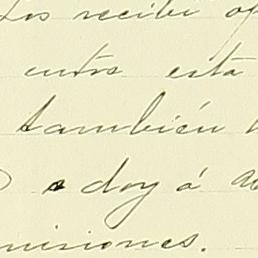 los recibi
entró esta
también
doy á
misiones.